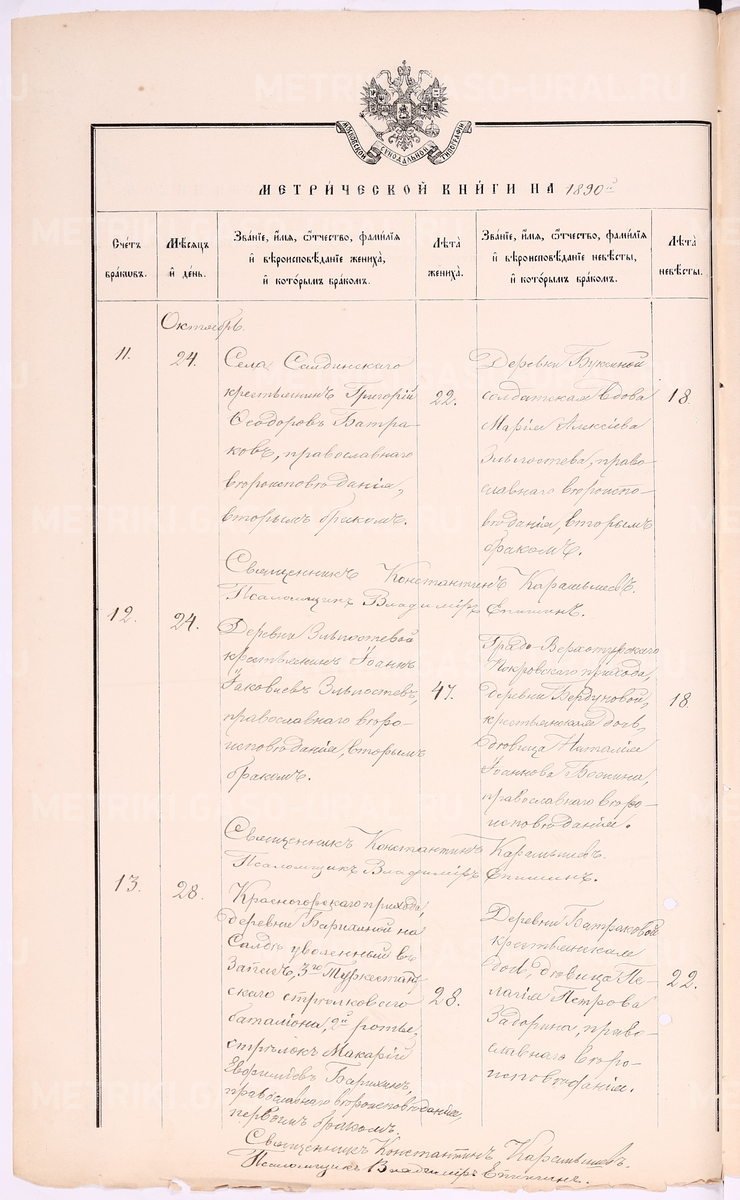 МОСКОВСКОЙ СѴНОДАЛЬНОЙ ТИПОГРАФІИ
МЕТРИ́ЧЕСКОЙ КНИ́ГИ НА 1890й
Сче́тъ бра́кωвъ.
Мѣ́сяцъ и҆ де́нь.
Зва́нїе, и҆́мя, ѻ҆́тчество, фами́лїя и҆ вѣроисповѣ́данїе жениха̀, и҆ кото́рымъ бра́комъ.
Лѣ́та жениха̀.
Зва́нїе, и҆́мя, ѻ҆́тчество, фами́лїя и҆ вѣроисповѣ́данїе невѣ́сты, и҆ кото́рымъ бра́комъ.
Лѣ́та невѣ́сты.
Октябрь
11.
24.
Села Салдинскаго
крестьянинъ Григорій
Ѳеодоровъ Батра-
ковъ, православнаго
вѣроисповѣданія,
вторымъ бракомъ.
22.
Деревни
солдатская вдова
Марія Алексіева
православнаго вѣроиспо-
вѣданія, вторымъ
бракомъ.
18.
Священникъ Константинъ Карамышевъ.
Псаломщикъ Владиміръ Епишинъ.
12.
24.
Деревни
крестьянинъ Іоаннъ
Іаковлевъ
православнаго вѣро-
исповѣданія, вторымъ
бракомъ.
47.
Градо-Верхотурскаго
Покровскаго прихода,
деревни Бердуновой,
крестьянская дочь,
дѣвица Наталія
Іоаннова Божина,
православнаго вѣро-
исповѣданія.
18
Священникъ Константинъ Карамышевъ.
Псаломщикъ Владиміръ Епишинъ.
13.
28.
Красногорскаго прихода,
деревни Барихиной на
Салдѣ уволенный въ
Запасъ, 3го Туркестан-
скаго стрѣлковаго
баталіона, 2й роты,
стрѣлокъ Макарій
Евфиміевъ Барихинъ,
православнаго вѣроисповѣданія,
первымъ бракомъ.
28.
Деревни Батраковой
крестьянская
дочь, дѣвица Пе-
лагія Петрова
Задорина, право-
славнаго вѣро-
исповѣданія.
22.
Священникъ Константинъ Карамышевъ.
Псаломщикъ Владиміръ Епишинъ.